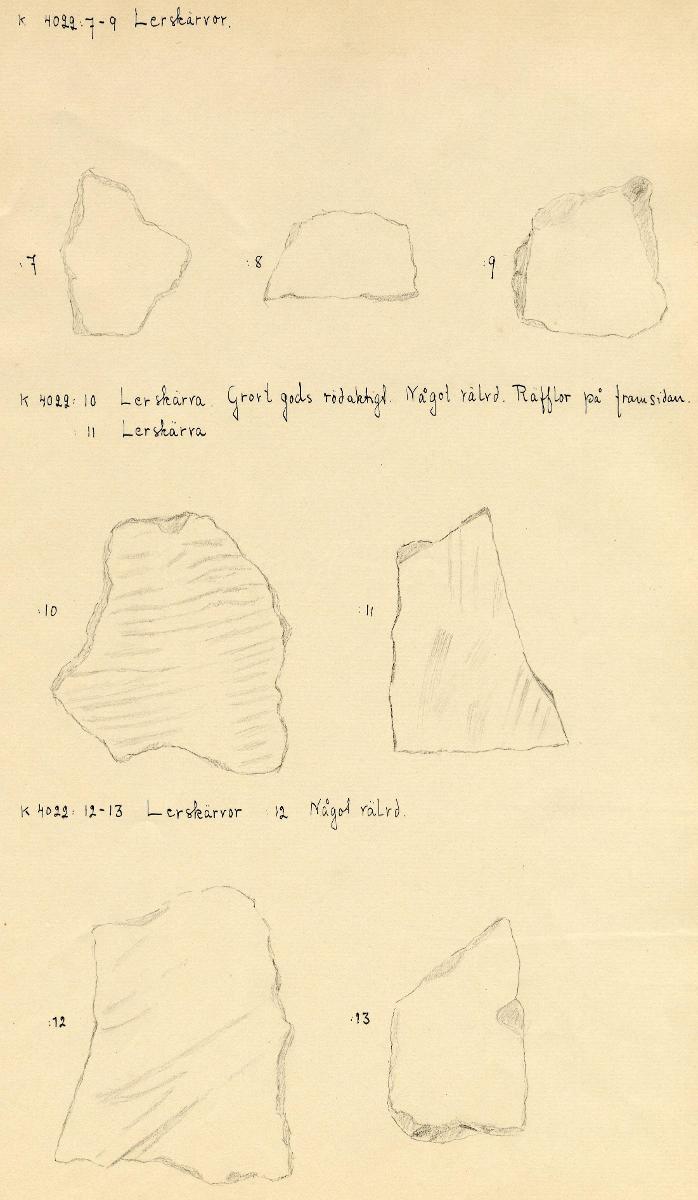 K 4022:7-9 Lerskärvor.
:7
:8
:9
K 4022:10 Lerskärva. Grovt gods rödaktigt. Något välvd. Räfflor på framsidan.
11 Lerskärva
:10
:11
K 4022:12-13 Lerskärvor :12 Något välvd.
:12
:13